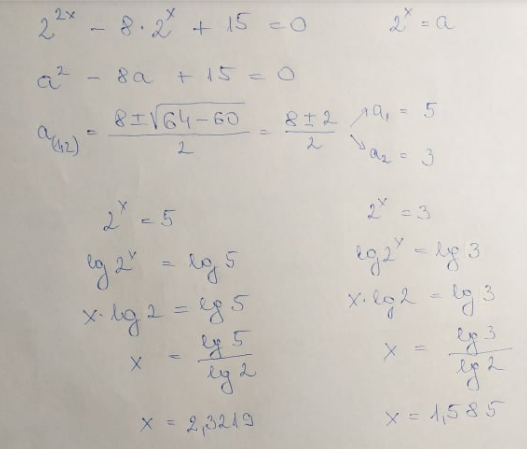 2^{2x} - 8 · 2^x + 15 = 0    2^x = a
a^2 - 8a + 15 = 0
a_{(1,2)} = \frac{8 ± \sqrt{64 - 60}}{2} = \frac{8 ± 2}{2}
a_1 = 5
a_2 = 3
2^x = 5
lg 2^x = lg 5
x · lg 2 = lg 5
x = \frac{lg 5}{lg 2}
x = 2,3219
2^x = 3
lg 2^x = lg 3
x · lg 2 = lg 3
x = \frac{lg 3}{lg 2}
x = 1,585